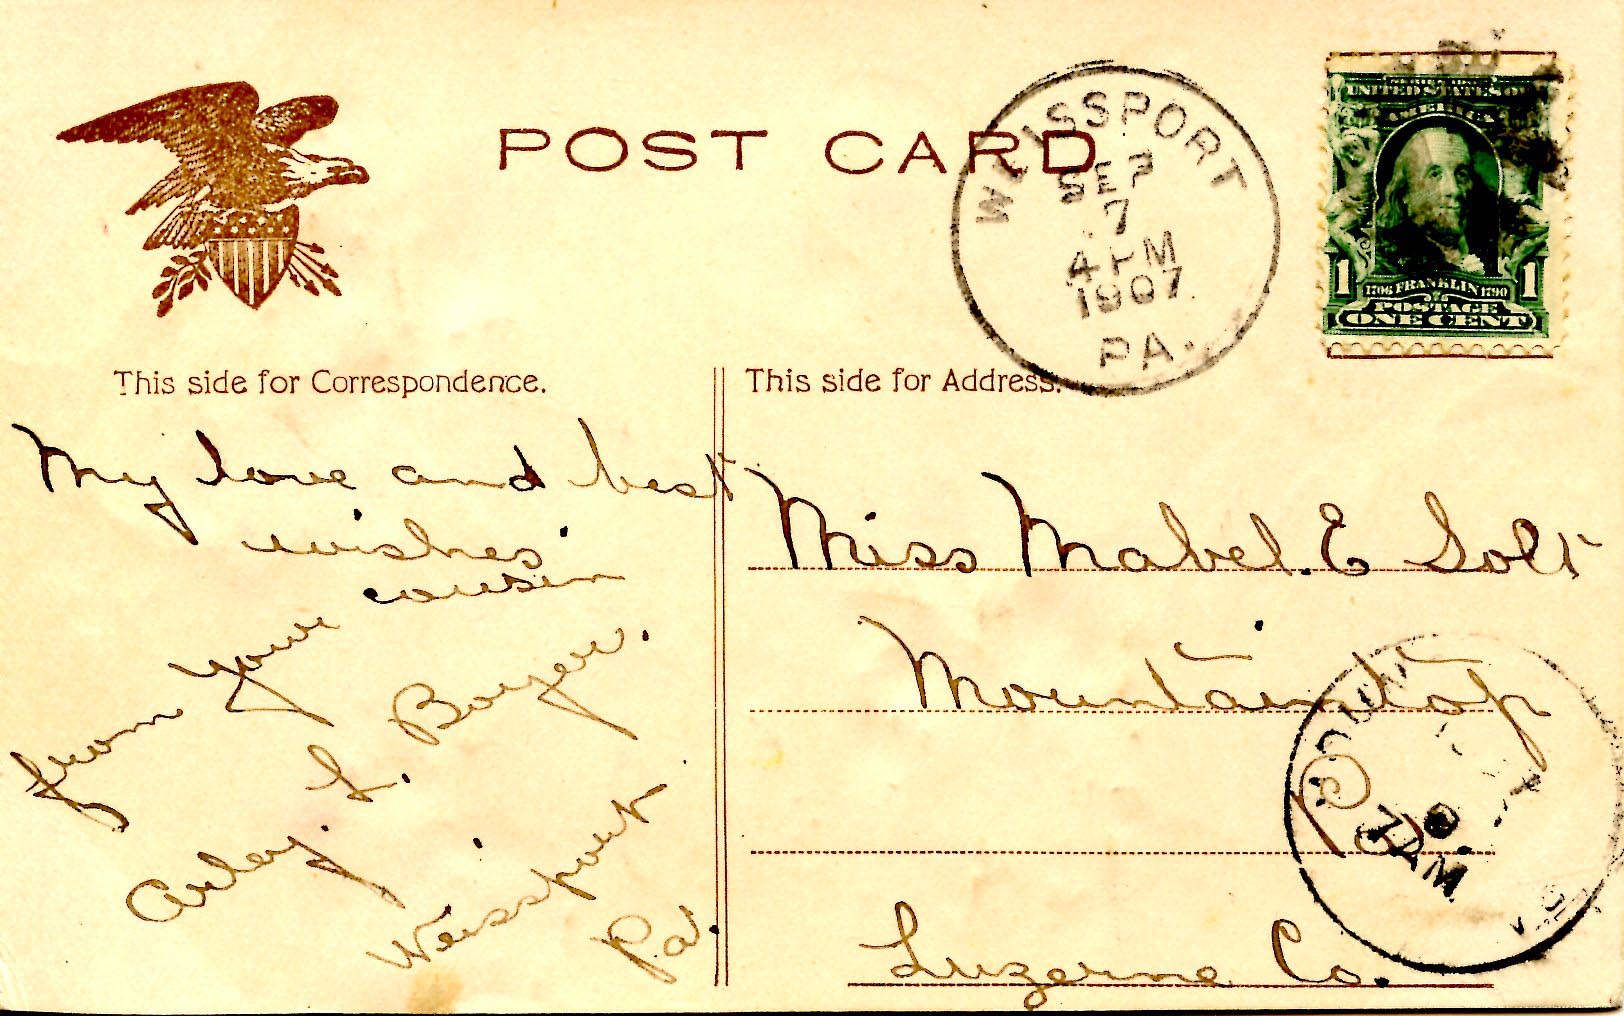 POST CARD
WEISSPORT
SEP
7
4 PM
1907
PA.
SERIES 1902
UNITED STATES OF
AMERICA
1 1706 FRANKLIN 1790 1
POSTAGE
ONE CENT
This side for Correspondence.
My love and best
wishes
from your cousin
Arley. L. Boyer.
Weissport
Pa.
This side for Address.
Miss Mabel. E Solt
Mountaintop
Pa
Luzerne Co.
7 AM.